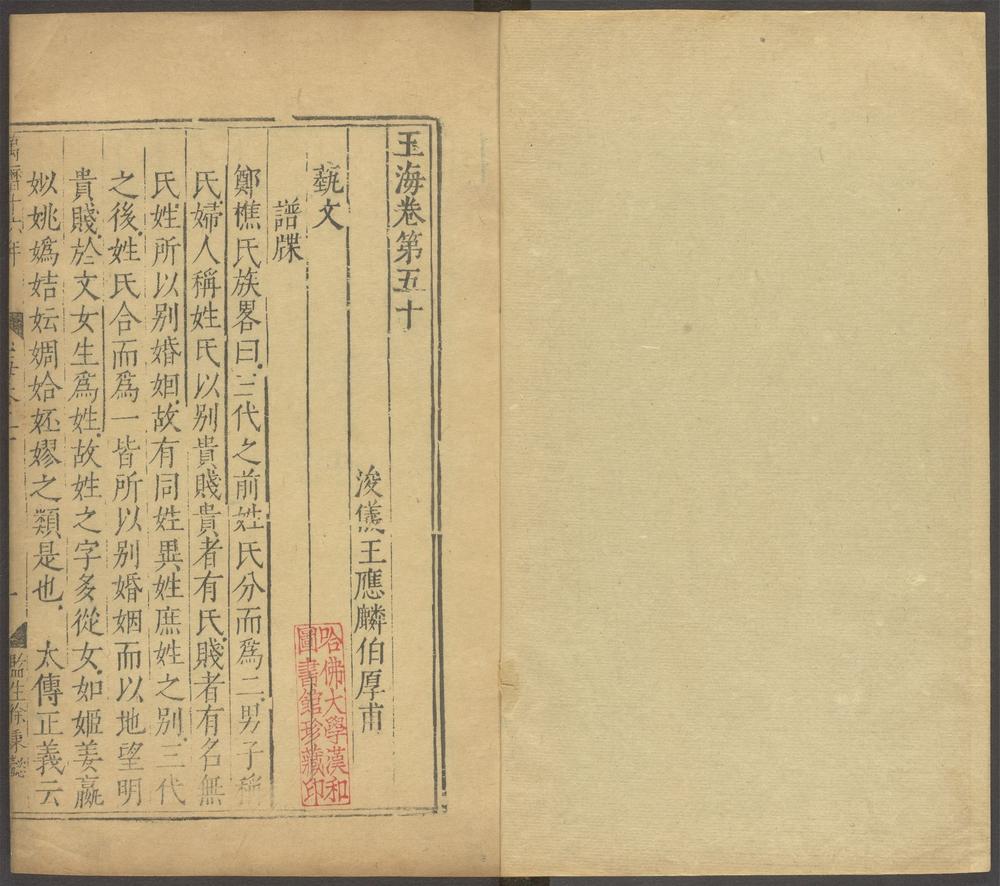 玉海卷第五十
浚儀王應麟伯厚甫
藝文
譜牒
鄭樵氏族畧曰三代之前姓氏分而爲二男子稱
氏婦人稱姓氏以别貴賤貴者有氏賤者有名無
氏姓所以别婚姻故有同姓異姓庶姓之别三代
之後姓氏合而爲一皆所以别婚姻而以地望明
貴賤於文女生爲姓故姓之字多從女如姬姜嬴
姒姚嬀姞妘婤姶嫪之類是也 太傳正義云
哈佛大學漢和
圖書館珍藏印
十六年
監生徐秉